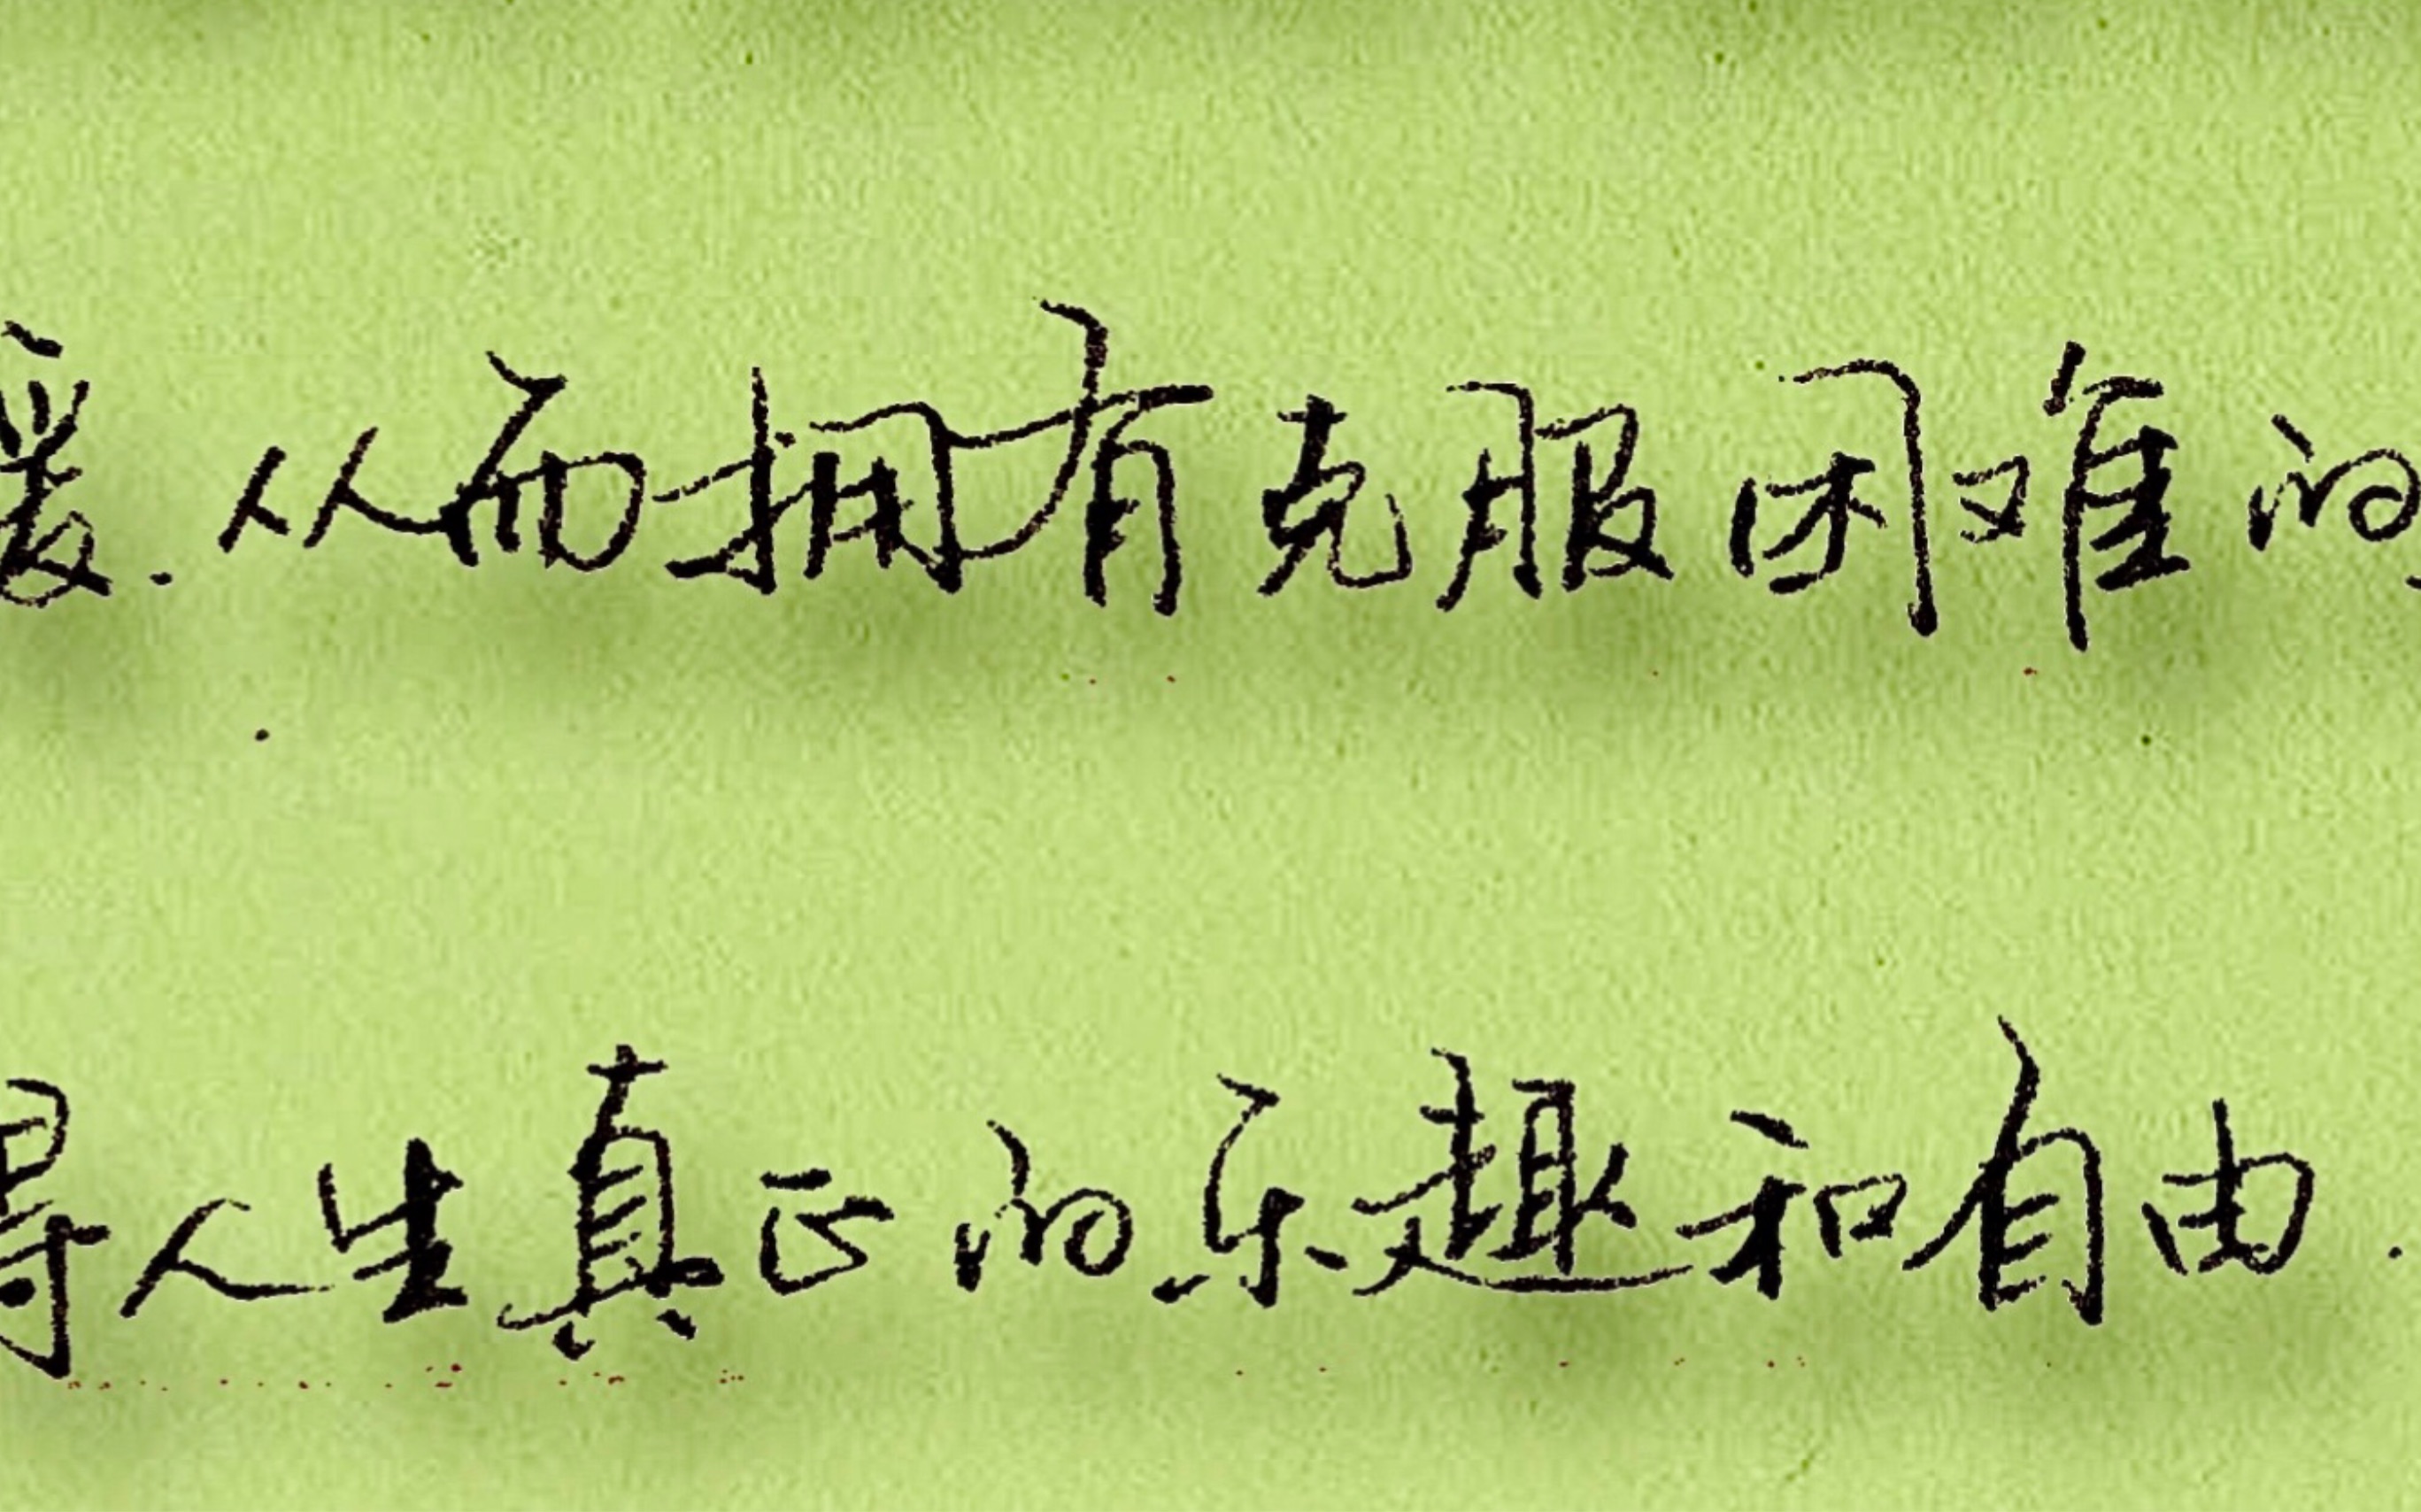 暖.从而拥有克服困难的
得人生真正的乐趣和自由.